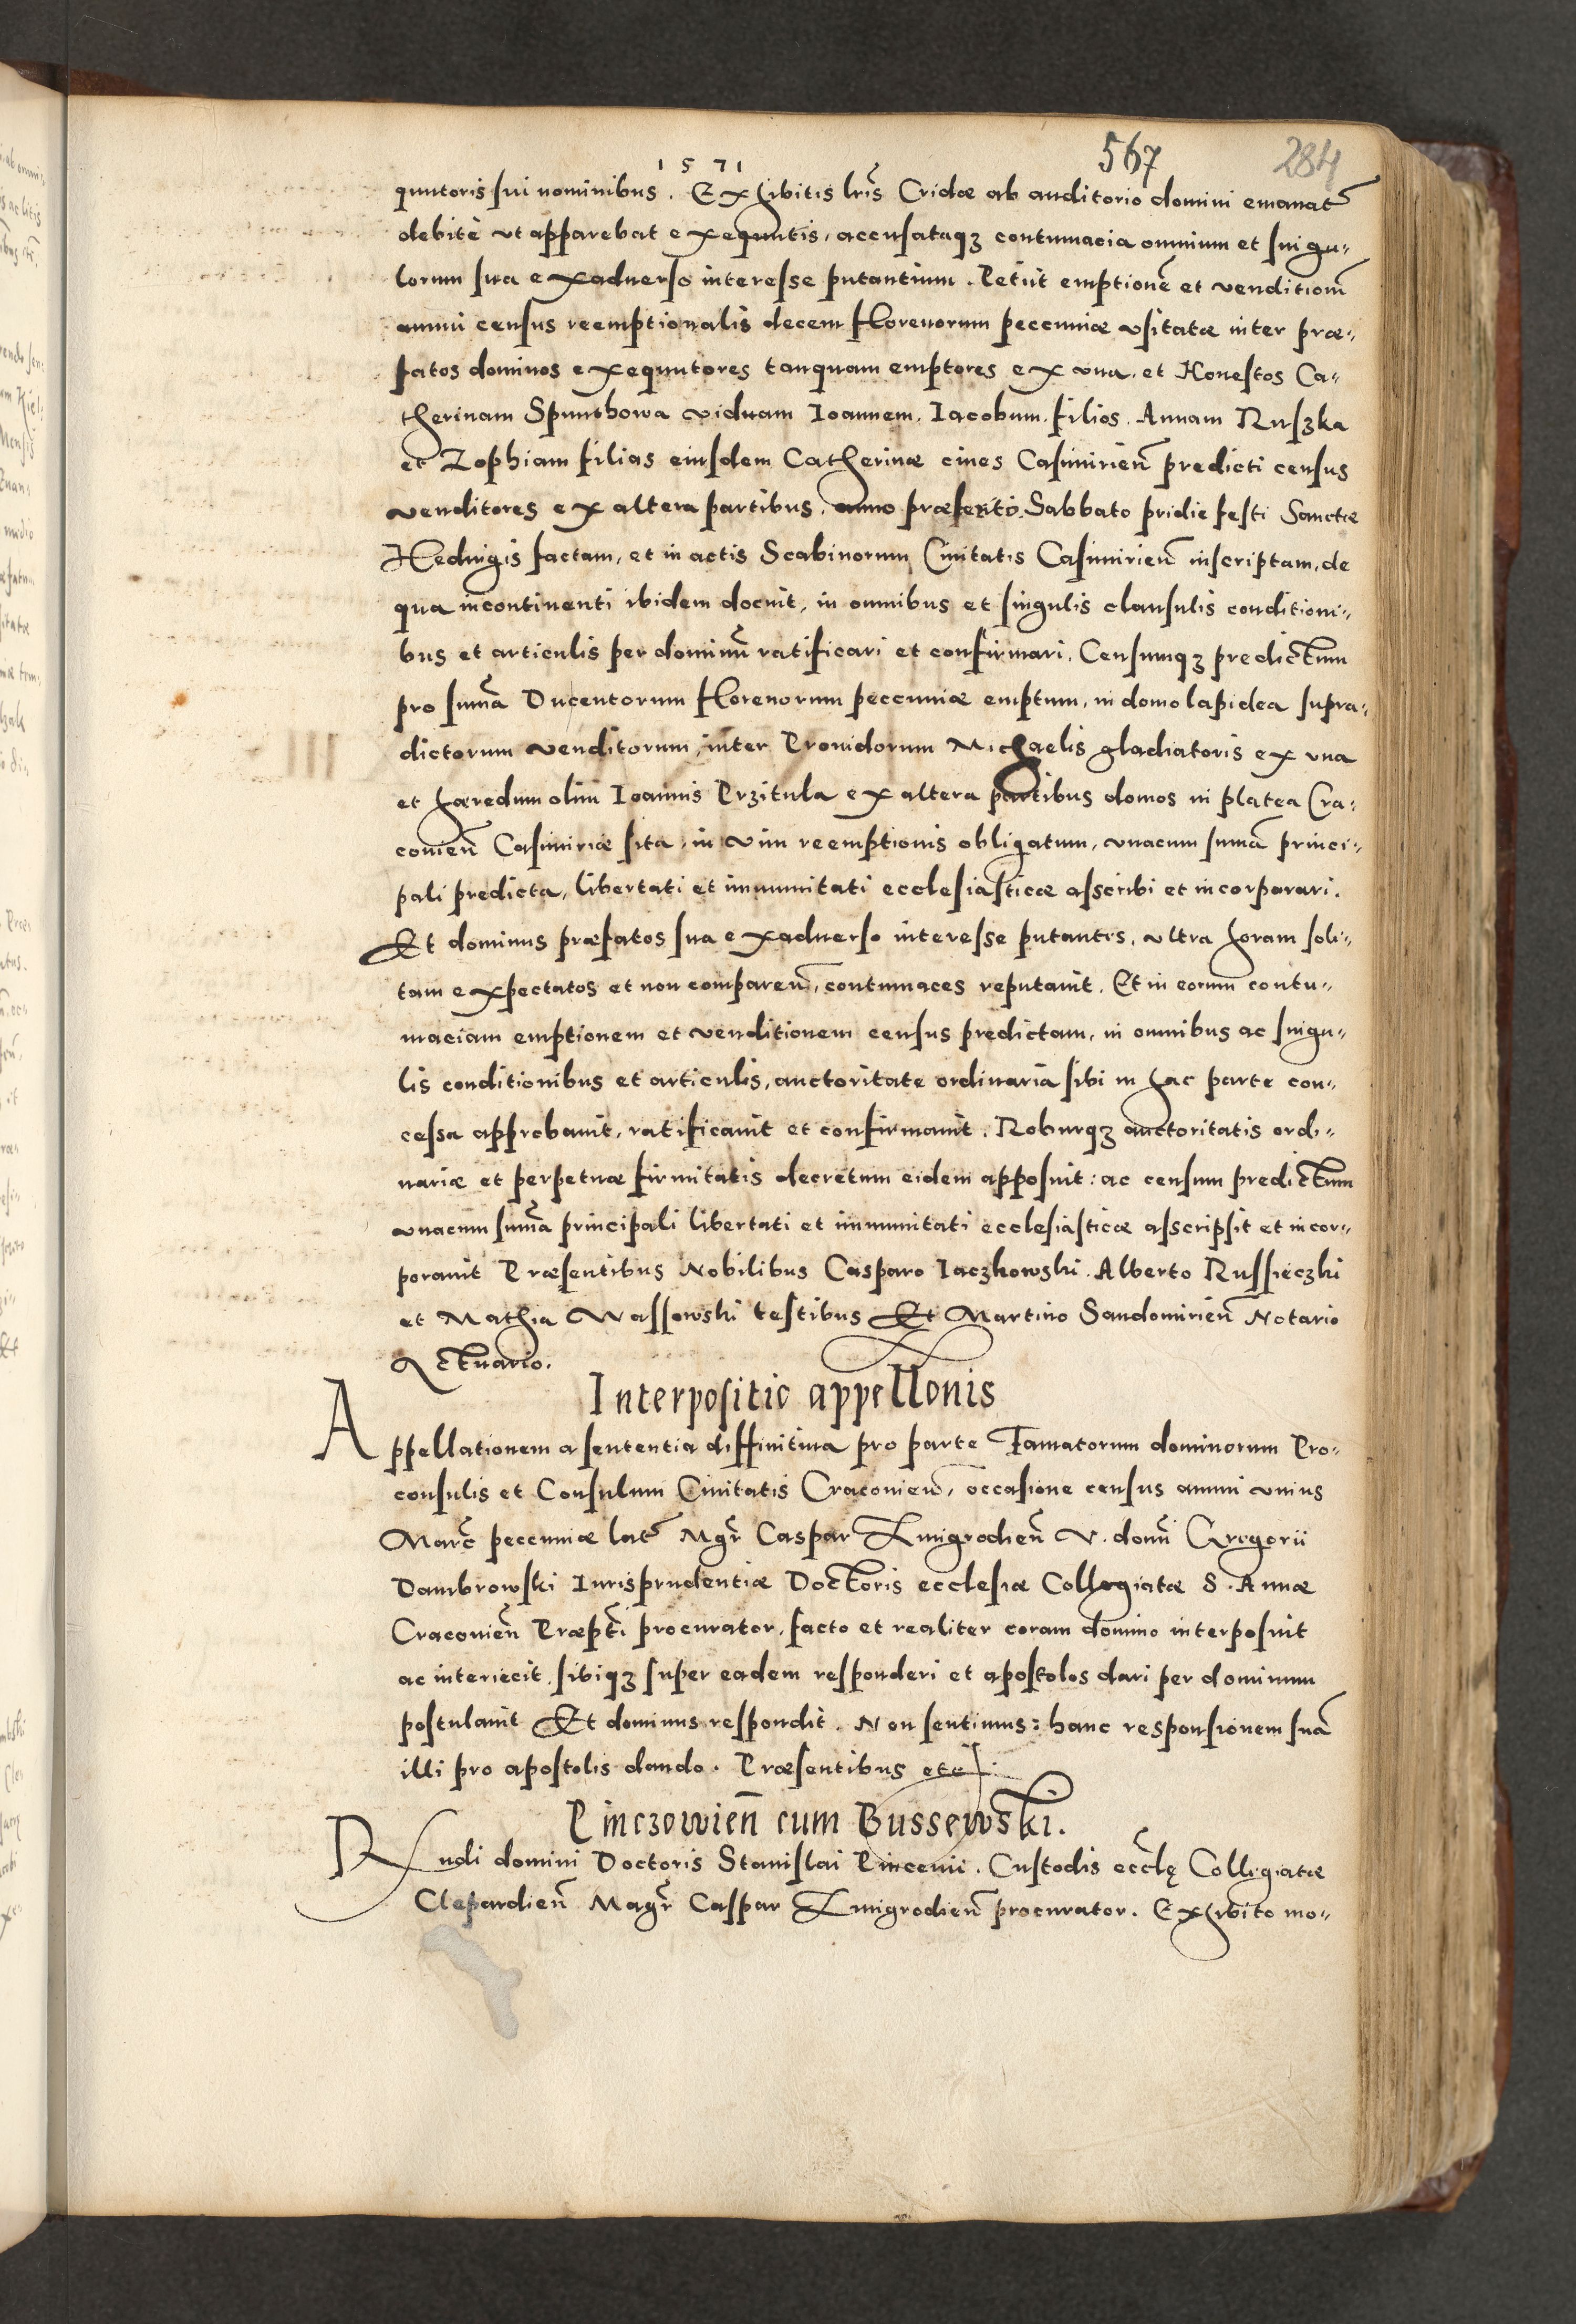 1571
567
284
quutoris sui nominibus. Exhibitis lr̃is Cridæ ab auditorio domini emanat̃
debitè vt apparebat exequutis, accusataqꝫ contumacia omnium et singu„
lorum sua exaduerso interesse putantium. Petiit emptionẽ et venditionẽ
annui census reemptionalis decem florenorum peccuniæ vsitatæ inter præ„
fatos dominos exequutores tanquam emptores ex vna, et Honestos Ca„
therinam Spunthowa viduam Ioannem, Iacobum filios, Annam Ruszka
et Zophiam filias eiusdem Catherinæ ciues Casimirien̄ predicti census
venditores ex altera partibus, anno præsenti Sabbato pridie festi Sanctæ
Heduigis factam, et in actis Scabinorum Ciuitatis Casimirien̄ inscriptam, de
qua incontinenti ibidem docuit, in omnibus et singulis clausulis conditioni„
bus et articulis per dominũ ratificari et confirmari, Censumqꝫ predictum
pro sum̃a Ducentorum florenorum peccuniæ emptum, in domo lapidea supra„
dictorum venditorum, inter Prouidorum Michaelis gladiatoris ex vna
et hæredum olim Ioannis Przitula ex altera partibus domos in platea Cra„
couien̄ Casimiriæ sita, in vim reemptionis obligatum, vnacum sum̃a princi„
pali predicta, libertati et immunitati ecclesiasticæ asscribi et incorporari.
Et dominus præfatos sua exaduerso interesse putantes, vltra horam soli„
tam expectatos et non comparen̄, contumaces reputauit. Et in eorum contu„
maciam emptionem et venditionem census predictam, in omnibus ac singu„
lis conditionibus et articulis, auctoritate ordinaria sibi in hac parte con„
cessa approbauit, ratificauit et confirmauit. Roburqꝫ auctoritatis ordi„
nariæ et perpetuæ firmitatis decretum eidem apposuit: ac censum predictum
vnacum sum̃a principali libertati et immunitati ecclesiasticæ asscripsit et incor„
porauit Præsentibus Nobilibus Casparo Iaczkowski. Alberto Russieczki
et Mathia Wassowski testibus Et Martino Sandomirien̄ Notario
Actuario.
Interpositio appellonis
Appellationem a sententia diffinitiua pro parte Famatorum dominorum Pro„
consulis et Consulum Ciuitatis Cracouien̄, occasione census annui vnius
Marc̃ peccuniæ lat̃ Mgr̃ Caspar Zmigrodien̄ V. domĩ Gregorii
Dambrowski Iurisprudentiæ Doctoris ecclesiæ Collegiatæ S. Annæ
Cracouien̄ Præpt̃i procurator, facto et realiter coram domino interposuit
ac interiecit, sibiqꝫ super eadem responderi et apostolos dari per dominum
postulauit Et dominus respondit. Non sentimus: hanc responsionem suã
illi pro apostolis dando. Præsentibus etc
Pinczowien̄ cum Bussewski.
Rndi domini Doctoris Stanislai Pincenii. Custodis ecc̃lę Collegiatæ
Clepardien̄ Magr̃ Caspar Zmigrodien̄ procurator. Exhibito mo„